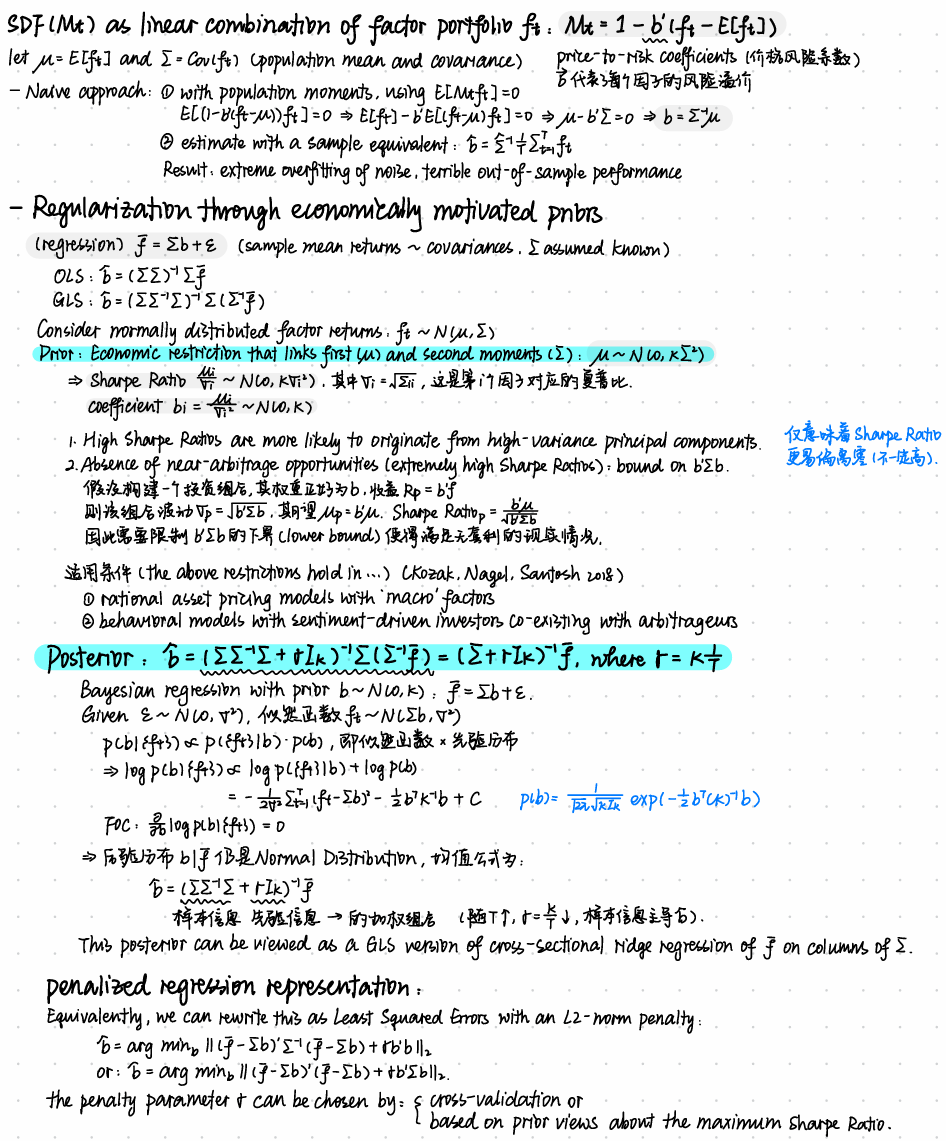 SDF(Mt) as linear combination of factor portfolio ft: Mt = 1 - b'(ft - E[ft])
let μ = E[ft] and Σ = Cov(ft) (population mean and covariance)
price-to-risk coefficients (价格风险系数)
代表了每个因子的风险溢价
- Naive approach: ① with population moments, using E[Mtft]=0
E[(1-b'(ft-μ))ft]=0 ⇒ E[ft]-b'E[(ft-μ)ft]=0 ⇒ μ-b'Σ=0 ⇒ b=Σ⁻¹μ
② estimate with a sample equivalent: b̂ = Σ̄⁻¹ 1/T Σₜ₌₁ᵀ ft
Result: extreme overfitting of noise, terrible out-of-sample performance
- Regularization through economically motivated priors
(regression) f̄ = Σb + ε (sample mean returns ~ covariances, Σ assumed known)
OLS: b̂ = (ΣΣ)⁻¹Σf̄
GLS: b̂ = (ΣΣ⁻¹Σ)⁻¹Σ(Σ⁻¹f̄)
Consider normally distributed factor returns: ft ~ N(μ,Σ)
Prior: Economic restriction that links first (μ) and second moments (Σ): μ ~ N(0, κΣ²)
⇒ Sharpe Ratio μi/σi ~ N(0, κσi²), 其中 σi = √Σii, 这是第i个因子对应的夏普比.
coefficient bi = μi/σi² ~ N(0,κ)
1. High Sharpe Ratios are more likely to originate from high-variance principal components.
仅意味着 Sharpe Ratio
更易偏离零 (不一定高).
2. Absence of near-arbitrage opportunities (extremely high Sharpe Ratios): bound on b'Σb.
假设构建一个投资组合, 其权重正好为b, 收益 Rp = b'f
则该组合波动 σp = √b'Σb, 期望 μp = b'μ. Sharpe Ratiop = b'μ/√b'Σb
因此需要限制 b'Σb 的下界 (lower bound) 使得满足无套利的现实情况.
适用条件 (the above restrictions hold in ...) (Kozak, Nagel, Santosh 2018)
① rational asset pricing models with 'macro' factors
② behavioral models with sentiment-driven investors co-existing with arbitrageurs
Posterior: b̂ = (ΣΣ⁻¹Σ + γIk)⁻¹Σ(Σ⁻¹f̄) = (Σ + γIk)⁻¹f̄, where γ = κ 1/T
Bayesian regression with prior b ~ N(0,κ): f̄ = Σb + ε.
Given ε ~ N(0,σ²), 似然函数 ft ~ N(Σb,σ²)
p(b|{ft}) ∝ p({ft}|b)·p(b), 即似然函数 × 先验分布
⇒ log p(b|{ft}) ∝ log p({ft}|b) + log p(b)
= - 1/2σ² Σₜ₌₁ᵀ (ft-Σb)² - ½bᵀκ⁻¹b + C
p(b) = 1/√2π√κIk exp(-½bᵀ(κ)⁻¹b)
FOC: ∂/∂b log p(b|{ft}) = 0
⇒ 后验分布 b|f̄ 仍是 Normal Distribution, 均值公式为:
b̂ = (ΣΣ⁻¹Σ + γIk)⁻¹f̄
样本信息 先验信息 → 的加权组合 (随T↑, γ=κ/T↓, 样本信息主导b̂).
This posterior can be viewed as a GLS version of cross-sectional ridge regression of f̄ on columns of Σ.
penalized regression representation:
Equivalently, we can rewrite this as Least Squared Errors with an L2-norm penalty:
b̂ = arg minb ‖(f̄-Σb)'Σ⁻¹(f̄-Σb) + γb'b‖₂
or: b̂ = arg minb ‖(f̄-Σb)'(f̄-Σb) + γb'Σb‖₂.
the penalty parameter γ can be chosen by: { cross-validation or
based on prior views about the maximum Sharpe Ratio.